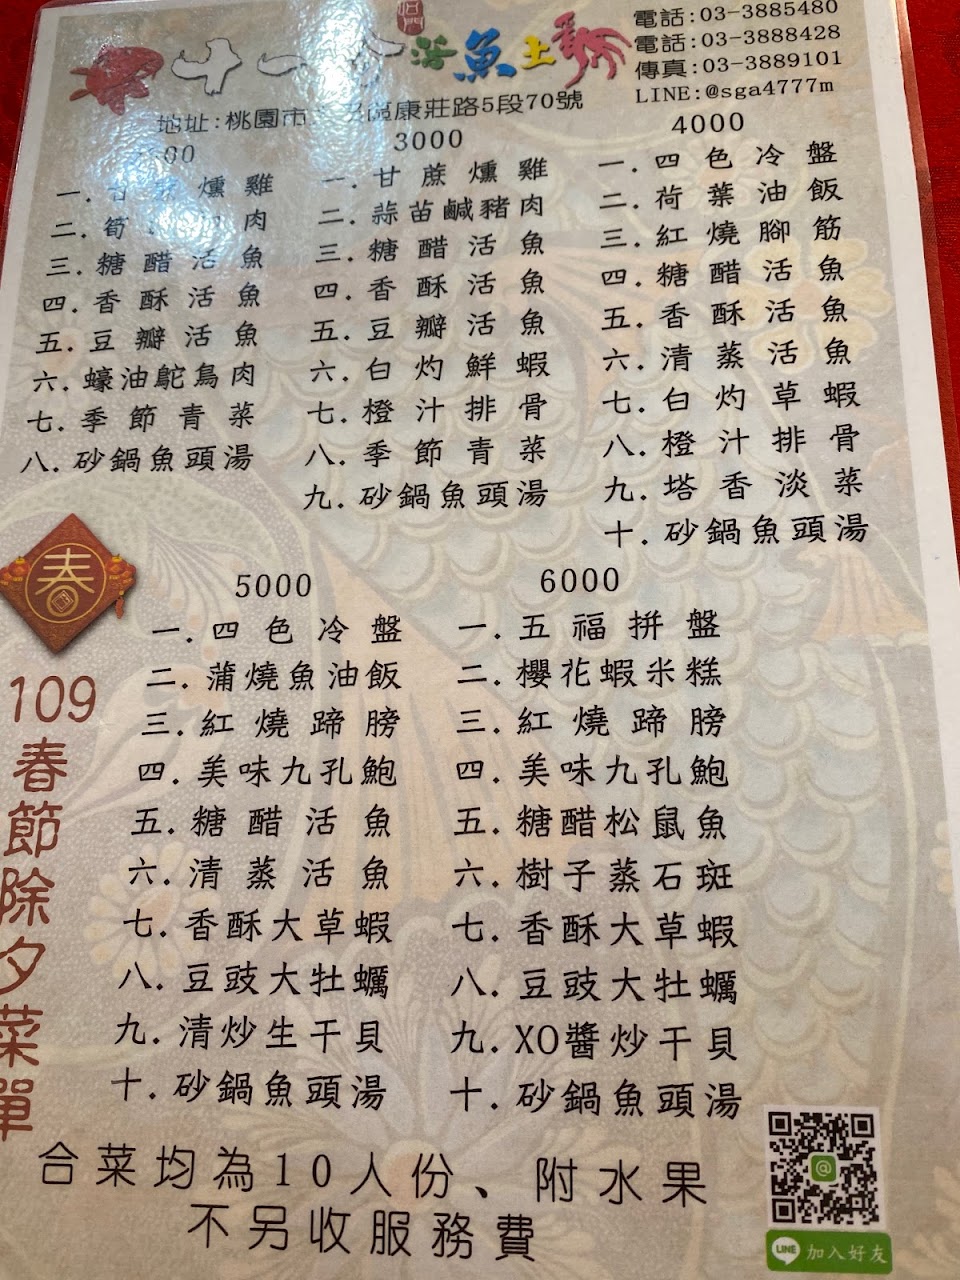 石門
十一 活魚土雞
電話:03-3885480
電話:03-3888428
傳真:03-3889101
LINE:@sga4777m
地址:桃園市 區康莊路5段70號
00
一.甘蔗燻雞
二.筍 肉
三.糖醋活魚
四.香酥活魚
五.豆瓣活魚
六.蠔油鴕鳥肉
七.季節青菜
八.砂鍋魚頭湯
3000
一.甘蔗燻雞
二.蒜苗鹹豬肉
三.糖醋活魚
四.香酥活魚
五.豆瓣活魚
六.白灼鮮蝦
七.橙汁排骨
八.季節青菜
九.砂鍋魚頭湯
4000
一.四色冷盤
二.荷葉油飯
三.紅燒腳筋
四.糖醋活魚
五.香酥活魚
六.清蒸活魚
七.白灼草蝦
八.橙汁排骨
九.塔香淡菜
十.砂鍋魚頭湯
春
109春節除夕菜單
5000
一.四色冷盤
二.蒲燒魚油飯
三.紅燒蹄膀
四.美味九孔鮑
五.糖醋活魚
六.清蒸活魚
七.香酥大草蝦
八.豆豉大牡蠣
九.清炒生干貝
十.砂鍋魚頭湯
6000
一.五福拼盤
二.櫻花蝦米糕
三.紅燒蹄膀
四.美味九孔鮑
五.糖醋松鼠魚
六.樹子蒸石斑
七.香酥大草蝦
八.豆豉大牡蠣
九.XO醬炒干貝
十.砂鍋魚頭湯
合菜均為10人份、附水果
不另收服務費
LINE 加入好友